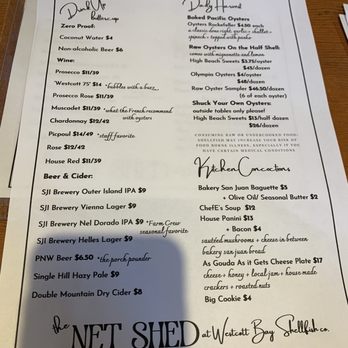 Drink Up
buttercup
Zero Proof:
Coconut Water $4
Non-alcoholic Beer $6
Wine:
Prosecco $11/39
"Westcott 75" $14 *bubbles with a buzz
Prosecco Rose $11/39
Muscadet $11/39 *what the French recommend
with oysters
Chardonnay $12/42
Picpaul $14/49 *staff favorite
Rose $12/42
House Red $11/39
Beer & Cider:
SJI Brewery Outer Island IPA $9
SJI Brewery Vienna Lager $9
SJI Brewery Nel Dorado IPA $9 *Farm Crew
seasonal favorite
SJI Brewery Helles Lager $9
PNW Beer $6.50 *the porch pounder
Single Hill Hazy Pale $9
Double Mountain Dry Cider $8
Daily Harvest
Baked Pacific Oysters
Oysters Rockefeller $4.50 each
a classic done right, garlic + shallot +
spinach + topped with panko
Raw Oysters On The Half Shell:
come with mignonette and lemon
High Beach Sweets $3.75/oyster
$43/dozen
Olympia Oysters $4/oyster
$48/dozen
Raw Oyster Sampler $46.50/dozen
(6 of each oyster)
Shuck Your Own Oysters:
outside tables only please!
High Beach Sweets $13/half dozen
$26/dozen
CONSUMING RAW OR UNDERCOOKED FOOD,
SHELLFISH MAY INCREASE YOUR RISK OF
FOOD BORNE ILLNESS, ESPECIALLY IF YOU
HAVE CERTAIN MEDICAL CONDITIONS
Kitchen Concoctions
Bakery San Juan Baguette $5
+ Olive Oil/ Seasonal Butter $2
ChefE's Soup $12
House Panini $13
+ Bacon $4
sautéed mushrooms + cheese in between
bakery san juan bread
As Gouda As it Gets Cheese Plate $17
cheese + honey + local jam + house made
crackers + roasted nuts
Big Cookie $4
the NET SHED at Westcott Bay Shellfish co.